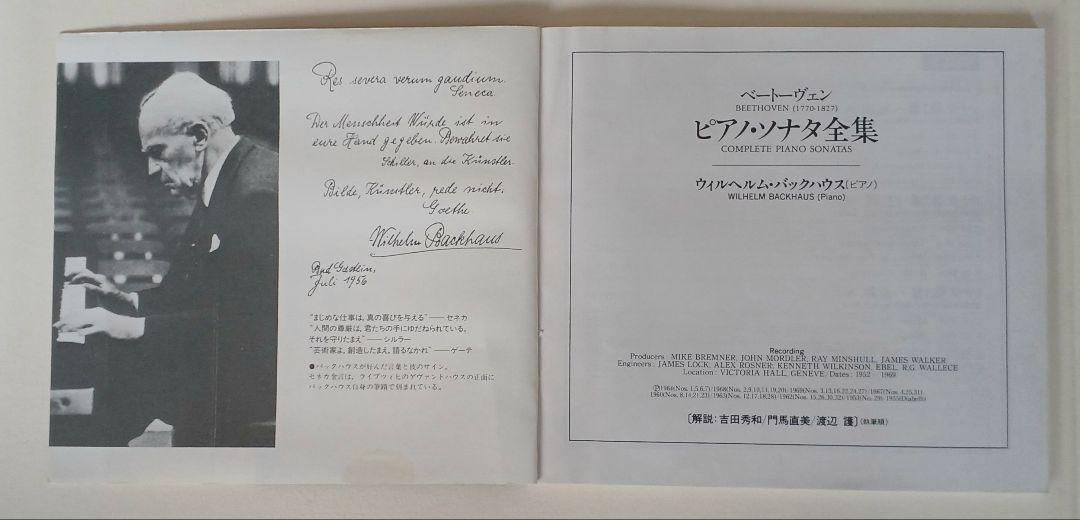 Res severa verum gaudium.
Seneca.
Der Menschheit Würde ist in
eure Hand gegeben. Bewahret sie
Schiller, an die Künstler.
Bilde, Künstler, rede nicht.
Goethe
Wilhelm Backhaus
Bad Gastein,
Juli 1956
"まじめな仕事は、真の喜びを与える"——セネカ
"人間の尊厳は、君たちの手にゆだねられている。
それを守りたまえ"——シルラー
"芸術家よ、創造したまえ、語るなかれ"——ゲーテ
●バックハウスが好んだ言葉と彼のサイン。
セネカ金言は、ライプツィヒのゲヴァントハウスの正面に
バックハウス自身の筆蹟で刻まれている。
ベートーヴェン
BEETHOVEN (1770-1827)
ピアノ・ソナタ全集
COMPLETE PIANO SONATAS
ウィルヘルム・バックハウス(ピアノ)
WILHELM BACKHAUS (Piano)
Recording
Producers: MIKE BREMNER, JOHN MORDLER, RAY MINSHULL, JAMES WALKER
Engineers: JAMES LOCK, ALEX ROSNER, KENNETH WILKINSON, EBEL, R.G. WALLECE
Location: VICTORIA HALL, GENEVE/Dates: 1952 1969
[解説:吉田秀和/門馬直美/渡辺 護](執筆順)